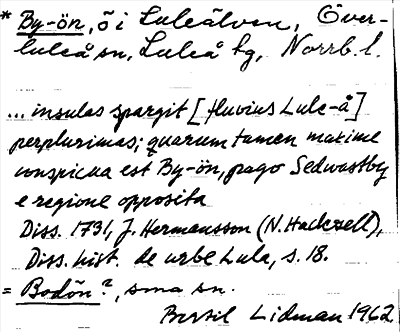 * By-ön, ö i Luleälven, Över-
luleå sn, Luleå kg, Norrb. l.
... insulas spargit [fluvius Lule-å]
perplurimas; quarum tamen maxime
conspicua est By-ön, pago Sedwastby
e regione opposita
Diss. 1731, J. Hermansson (N. Hackzell),
Diss. hist. de urbe Lula, s. 18.
= Bodön?, sma sn.
Bertil Lidman 1962.